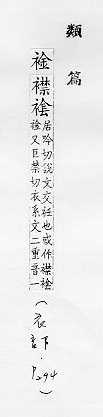 類篇
襟
居吟切說文交衽也或作襟
又巨禁切衣系文二重音一
(衣部下.P294)